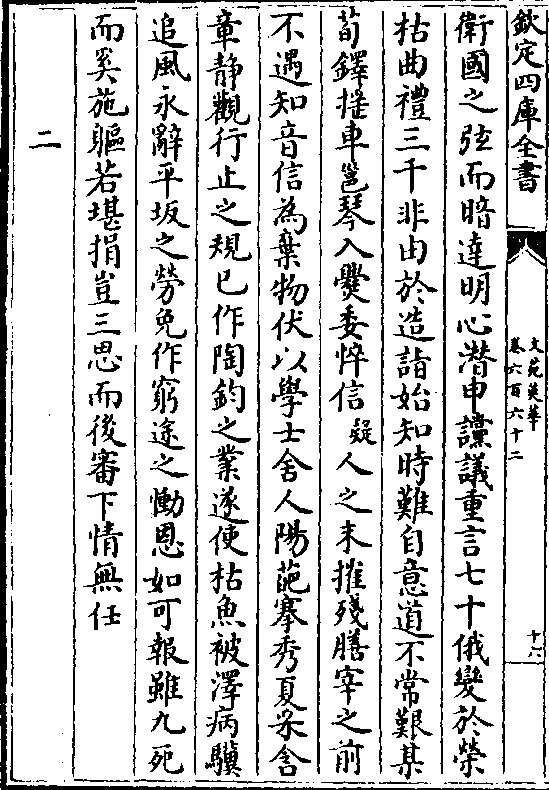 欽定四庫全書
文苑英華
卷六百六十二
十六
衛國之弦而暗達明心潛申讜議重言七十俄變於榮
枯曲禮三千非由於造詣始知時難自意道不常艱某
荀鐸揺車邕琴入爨委悴信疑人之末摧殘膳宰之前
不遇知音信為棄物伏以學士舍人陽葩搴秀夏采含
章静觀行止之規已作陶鈞之業遂使枯魚被澤病驥
追風永辭平坂之勞免作窮途之慟恩如可報雖九死
而奚施軀若堪捐豈三思而後審下情無任
二